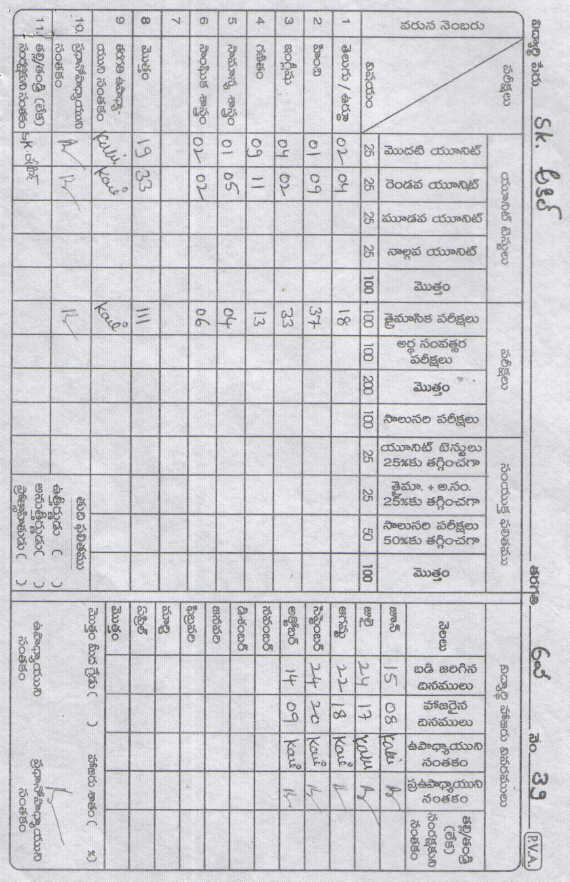 విద్యార్థి పేరు Sk. తరగతి 6వ నెం. 39 P.V.A.
వరుస నెంబరు 1 2 3 4 5 6 7 8 9 10. 11.
పరీక్షలు విషయం తెలుగు / ఉర్దూ హింది ఇంగ్లీషు గణితం సామాన్య శాస్త్రం సాంఘిక శాస్త్రం మొత్తం తరగతి ఉపాధ్యా-యుని సంతకం ప్రధానోపాధ్యాయుని సంతకం తల్లి/తండ్రి (లేక) సంరక్షకుని సంతకం
యూనిట్ టెస్టులు
మొదటి యూనిట్ 25 02 01 04 09 01 02 19
రెండవ యూనిట్ 25 04 09 02 11 05 02 33
మూడవ యూనిట్ 25
నాల్గవ యూనిట్ 25
మొత్తం 100
పరీక్షలు
త్రైమాసిక పరీక్షలు 100 18 37 33 13 04 06 111
అర్ధ సంవత్సర పరీక్షలు 100
మొత్తం 200
సాలుసరి పరీక్షలు 100
సంయుక్త ఫలితము
యూనిట్ టెస్టులు 25%కు తగ్గించగా 25
త్రైమా. + అ.సం. 25%కు తగ్గించగా 25
సాలుసరి పరీక్షలు 50%కు తగ్గించగా 50
మొత్తం 100
తుది ఫలితము
ఉత్తీర్ణుడు ( )
అనుత్తీర్ణుడు ( )
ప్రోత్సాహితుడు ( )
విద్యార్థి హాజరు వివరములు
నెలలు జూన్ జులై ఆగస్టు సెప్టెంబర్ అక్టోబర్ నవంబర్ డిశంబర్ జనవరి ఫిబ్రవరి మార్చి ఏప్రిల్ మొత్తం
బడి జరిగిన దినములు 15 24 22 24 14
హాజరైన దినములు 08 17 18 20 09
ఉపాధ్యాయుని సంతకం
ప్ర.ఉపాధ్యాయుని సంతకం
తల్లి/తండ్రి (లేక) సంరక్షకుని సంతకం
మొత్తం మీద గ్రేడు ( ) హాజరు శాతం ( %)
ఉపాధ్యాయుని సంతకం
ప్రధానోపాధ్యాయుని సంతకం